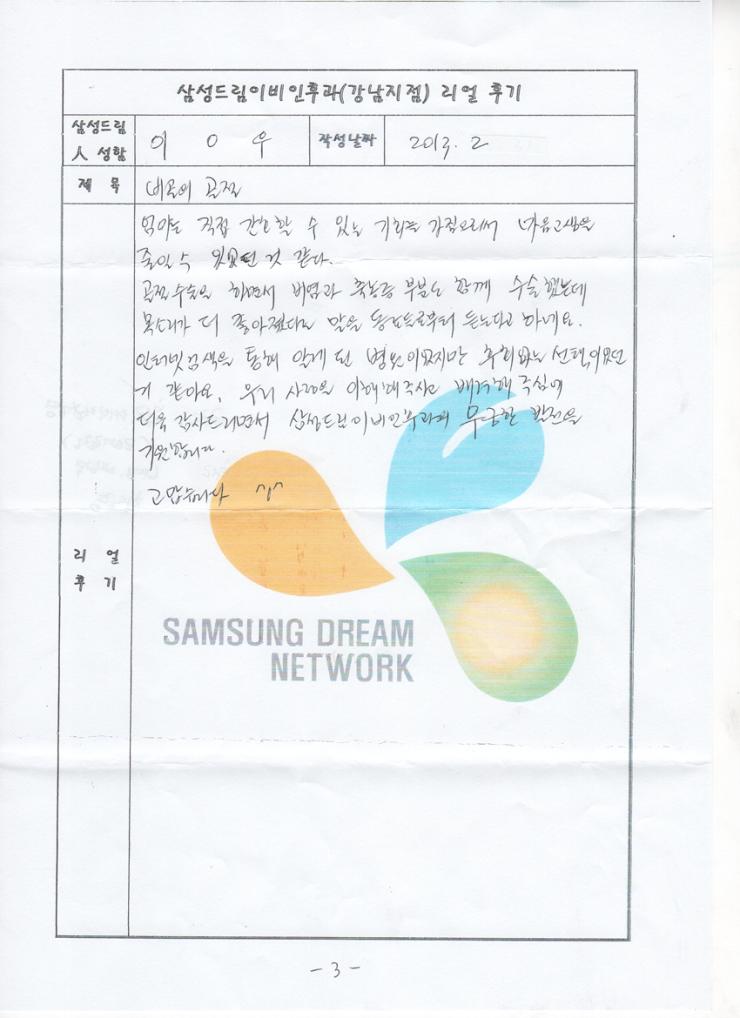 삼성드림이비인후과(강남지점) 리얼 후기
삼성드림
人 성함
이 O 우
작성날짜
2013. 2
제 목
리 얼
후 기
엄마도 직접 간호할 수 있는 기회를 가짐으로써 마음고생을
줄일 수 있었던 것 같다.
수술을 하면서 비염과 축농증 부분도 함께 수술했는데
목소리가 더 좋아졌다는 말을 듣는다고 하네요.
인터넷 검색을 통해 알게 된 병원이었지만 후회없는 선택이었던
거 같아요. 우리 사정을 이해해주시고 배려해 주심에
더욱 감사드리면서 삼성드림이비인후과에 무궁한 발전을
기원합니다.
고맙습니다 ^^
SAMSUNG DREAM
NETWORK
- 3 -